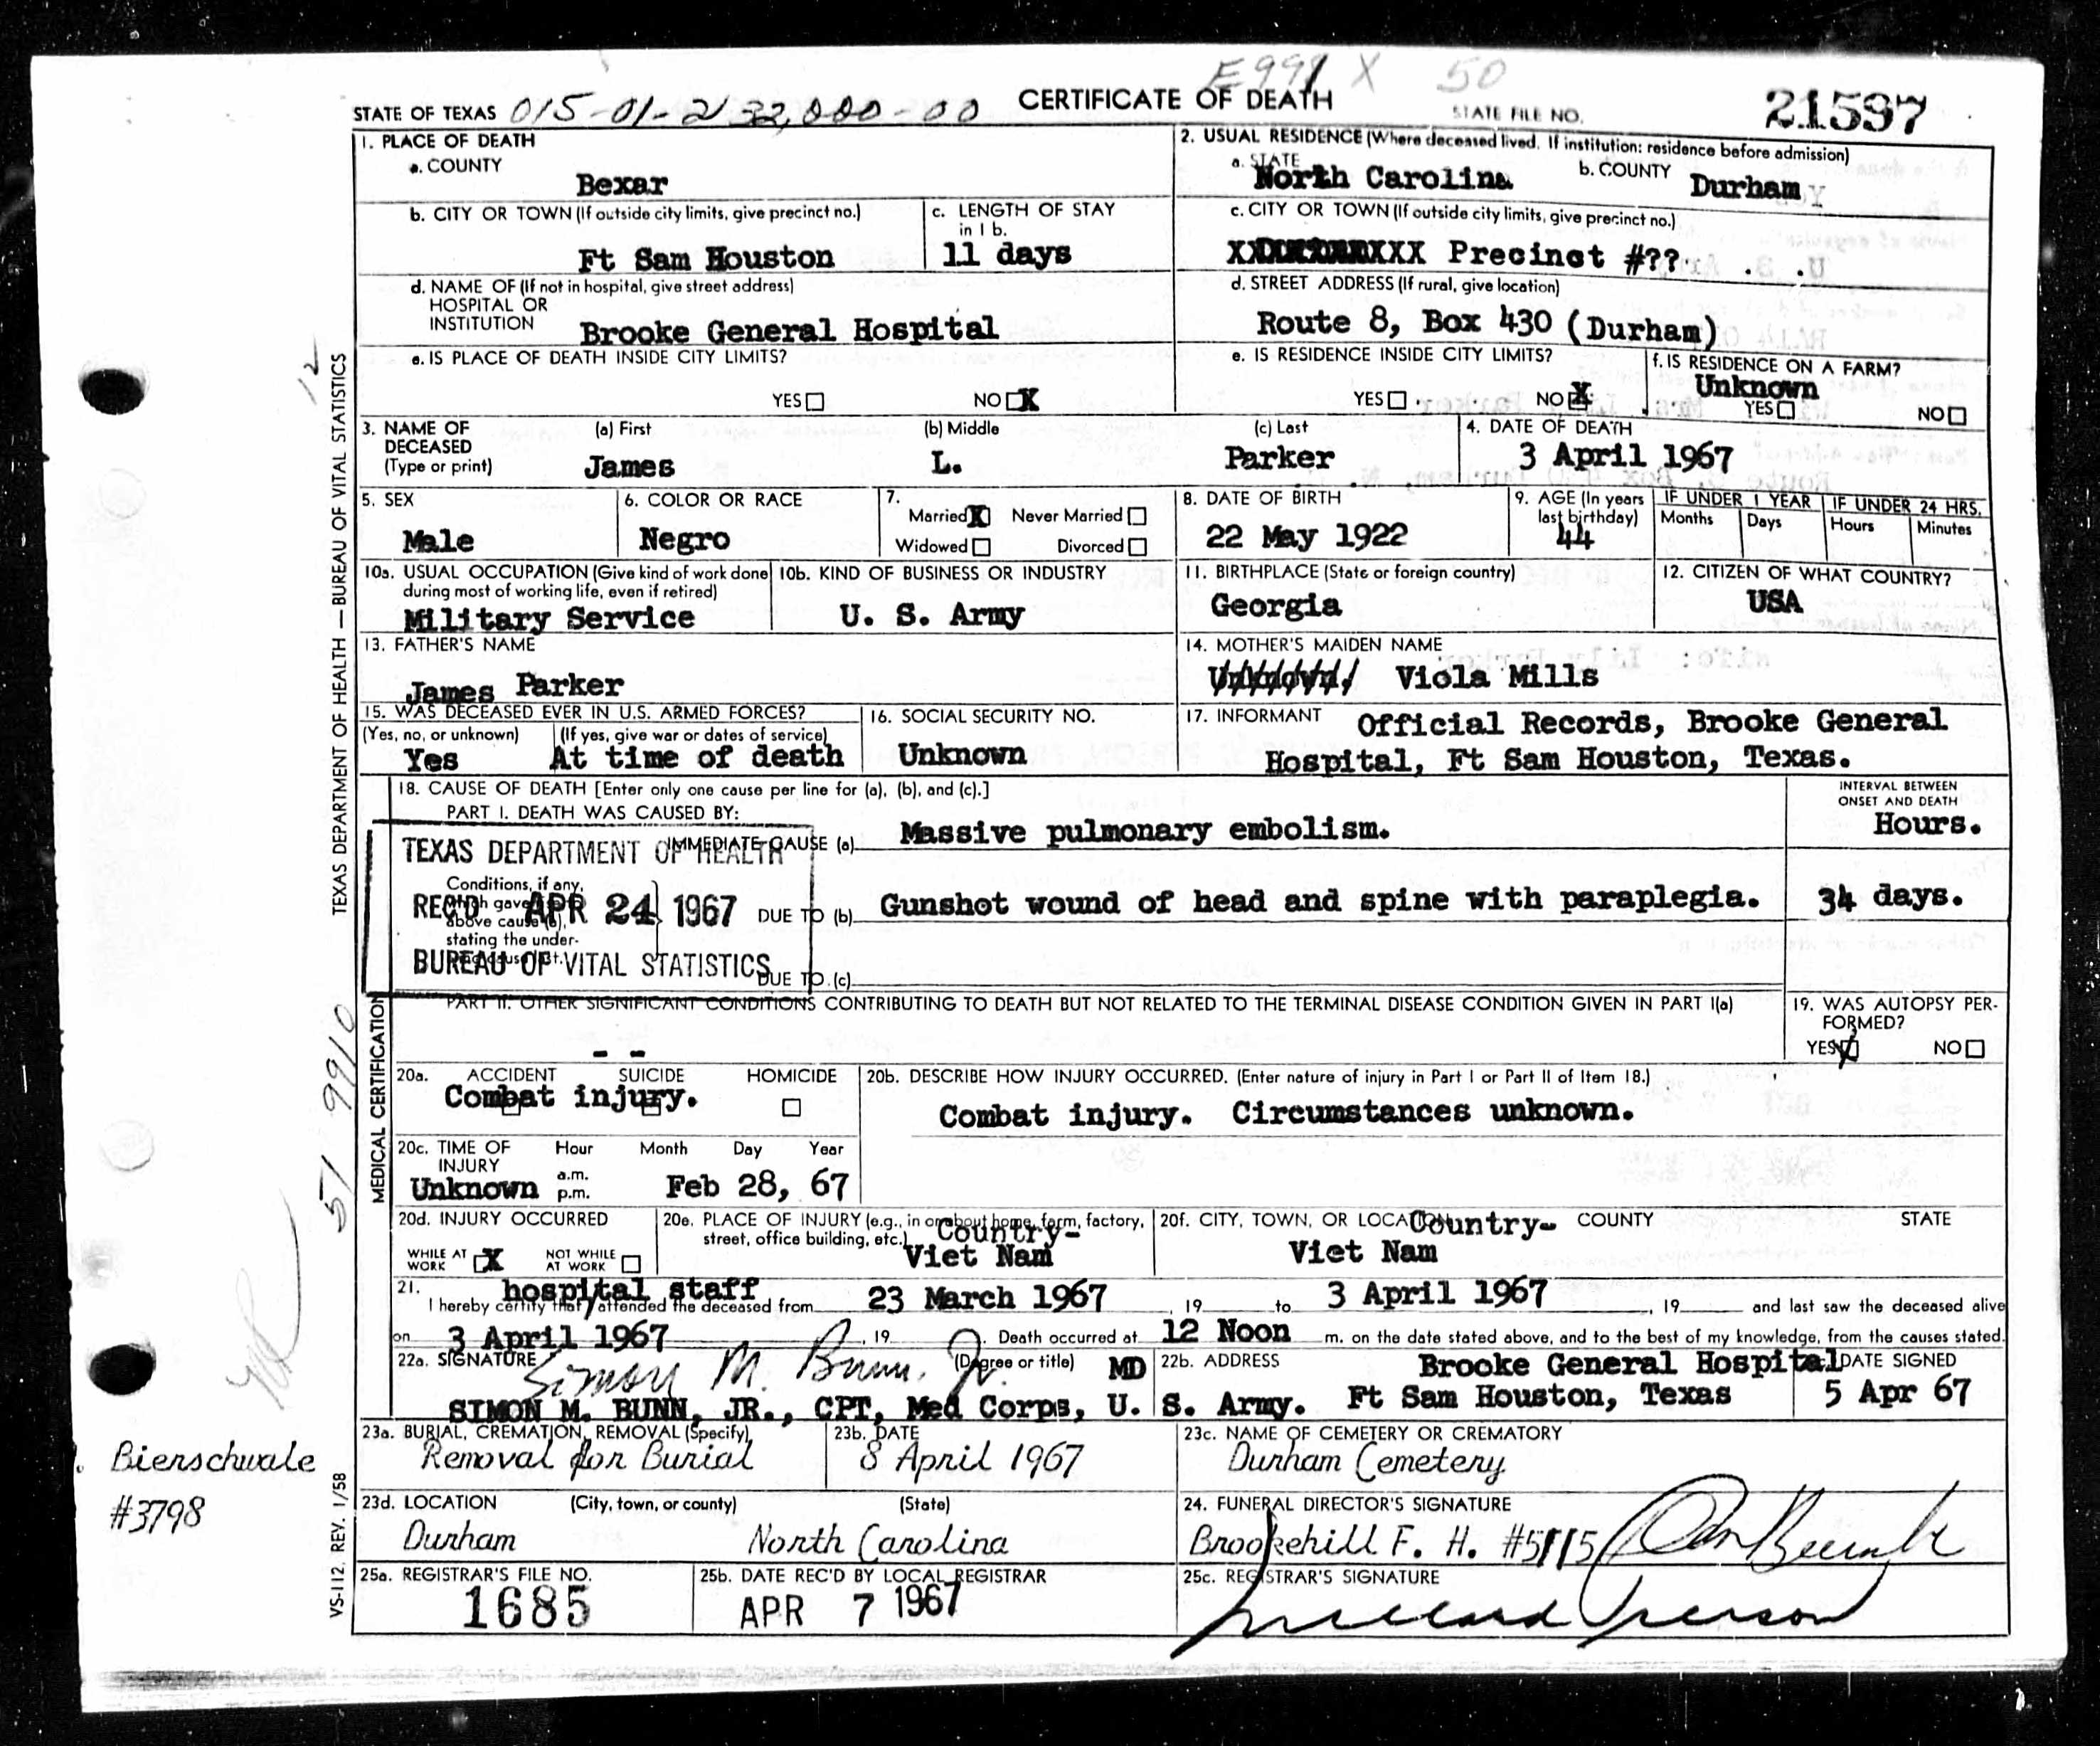 E991 X 50
STATE OF TEXAS 015-01-2 32,000-00 CERTIFICATE OF DEATH STATE FILE NO. 21597
1. PLACE OF DEATH
a. COUNTY
Bexar
2. USUAL RESIDENCE (Where deceased lived. If institution: residence before admission)
a. STATE
North Carolina
b. COUNTY
Durham
b. CITY OR TOWN (If outside city limits, give precinct no.)
Ft Sam Houston
c. LENGTH OF STAY
in 1 b.
11 days
c. CITY OR TOWN (If outside city limits, give precinct no.)
Precinct #??
d. NAME OF (If not in hospital, give street address)
HOSPITAL OR
INSTITUTION
Brooke General Hospital
d. STREET ADDRESS (If rural, give location)
Route 8, Box 430 (Durham)
e. IS PLACE OF DEATH INSIDE CITY LIMITS?
YES NO X
e. IS RESIDENCE INSIDE CITY LIMITS?
YES NO X
f. IS RESIDENCE ON A FARM?
Unknown
YES NO
3. NAME OF
DECEASED
(Type or print)
(a) First
James
(b) Middle
L.
(c) Last
Parker
4. DATE OF DEATH
3 April 1967
5. SEX
Male
6. COLOR OR RACE
Negro
7.
Married X Never Married
Widowed Divorced
8. DATE OF BIRTH
22 May 1922
9. AGE (In years
last birthday)
44
IF UNDER 1 YEAR
Months Days
IF UNDER 24 HRS.
Hours Minutes
10a. USUAL OCCUPATION (Give kind of work done
during most of working life, even if retired)
Military Service
10b. KIND OF BUSINESS OR INDUSTRY
U. S. Army
11. BIRTHPLACE (State or foreign country)
Georgia
12. CITIZEN OF WHAT COUNTRY?
USA
13. FATHER'S NAME
James Parker
14. MOTHER'S MAIDEN NAME
Unknown/ Viola Mills
15. WAS DECEASED EVER IN U.S. ARMED FORCES?
(Yes, no, or unknown) (If yes, give war or dates of service)
Yes At time of death
16. SOCIAL SECURITY NO.
Unknown
17. INFORMANT Official Records, Brooke General
Hospital, Ft Sam Houston, Texas.
18. CAUSE OF DEATH [Enter only one cause per line for (a), (b), and (c).]
PART I. DEATH WAS CAUSED BY:
INTERVAL BETWEEN
ONSET AND DEATH
IMMEDIATE CAUSE (a) Massive pulmonary embolism. Hours.
TEXAS DEPARTMENT OF HEALTH
REC'D APR 24 1967
BUREAU OF VITAL STATISTICS
Conditions, if any,
which gave
above cause (a),
stating the under-
DUE TO (b) Gunshot wound of head and spine with paraplegia. 34 days.
DUE TO (c)
PART II. OTHER SIGNIFICANT CONDITIONS CONTRIBUTING TO DEATH BUT NOT RELATED TO THE TERMINAL DISEASE CONDITION GIVEN IN PART I(a)
- -
19. WAS AUTOPSY PER-
FORMED?
YES X NO
20a. ACCIDENT SUICIDE HOMICIDE
Combat injury.
20b. DESCRIBE HOW INJURY OCCURRED. (Enter nature of injury in Part I or Part II of Item 18.)
Combat injury. Circumstances unknown.
20c. TIME OF
INJURY
Hour Month Day Year
a.m.
p.m.
Unknown Feb 28, 67
20d. INJURY OCCURRED
WHILE AT
WORK X
NOT WHILE
AT WORK
20e. PLACE OF INJURY (e.g., in or about home, farm, factory,
street, office building, etc.)
Country-
Viet Nam
20f. CITY, TOWN, OR LOCATION COUNTY STATE
Country-
Viet Nam
21. hospital staff
I hereby certify that / attended the deceased from 23 March 1967, 19 to 3 April 1967, 19 and last saw the deceased alive
on 3 April 1967, 19 . Death occurred at 12 Noon m. on the date stated above, and to the best of my knowledge, from the causes stated.
22a. SIGNATURE (Degree or title)
Simon M. Bunn, Jr. MD
SIMON M. BUNN, JR., CPT, Med Corps, U. S. Army.
22b. ADDRESS
Brooke General Hospital
Ft Sam Houston, Texas
DATE SIGNED
5 Apr 67
23a. BURIAL, CREMATION, REMOVAL (Specify)
Removal for Burial
23b. DATE
8 April 1967
23c. NAME OF CEMETERY OR CREMATORY
Durham Cemetery
23d. LOCATION (City, town, or county) (State)
Durham North Carolina
24. FUNERAL DIRECTOR'S SIGNATURE
Brookehill F. H. #5115
25a. REGISTRAR'S FILE NO.
1685
25b. DATE REC'D BY LOCAL REGISTRAR
APR 7 1967
25c. REGISTRAR'S SIGNATURE
TEXAS DEPARTMENT OF HEALTH — BUREAU OF VITAL STATISTICS
MEDICAL CERTIFICATION
VS-112 REV. 1/58
12
51 9910
Bierschwale
#3798